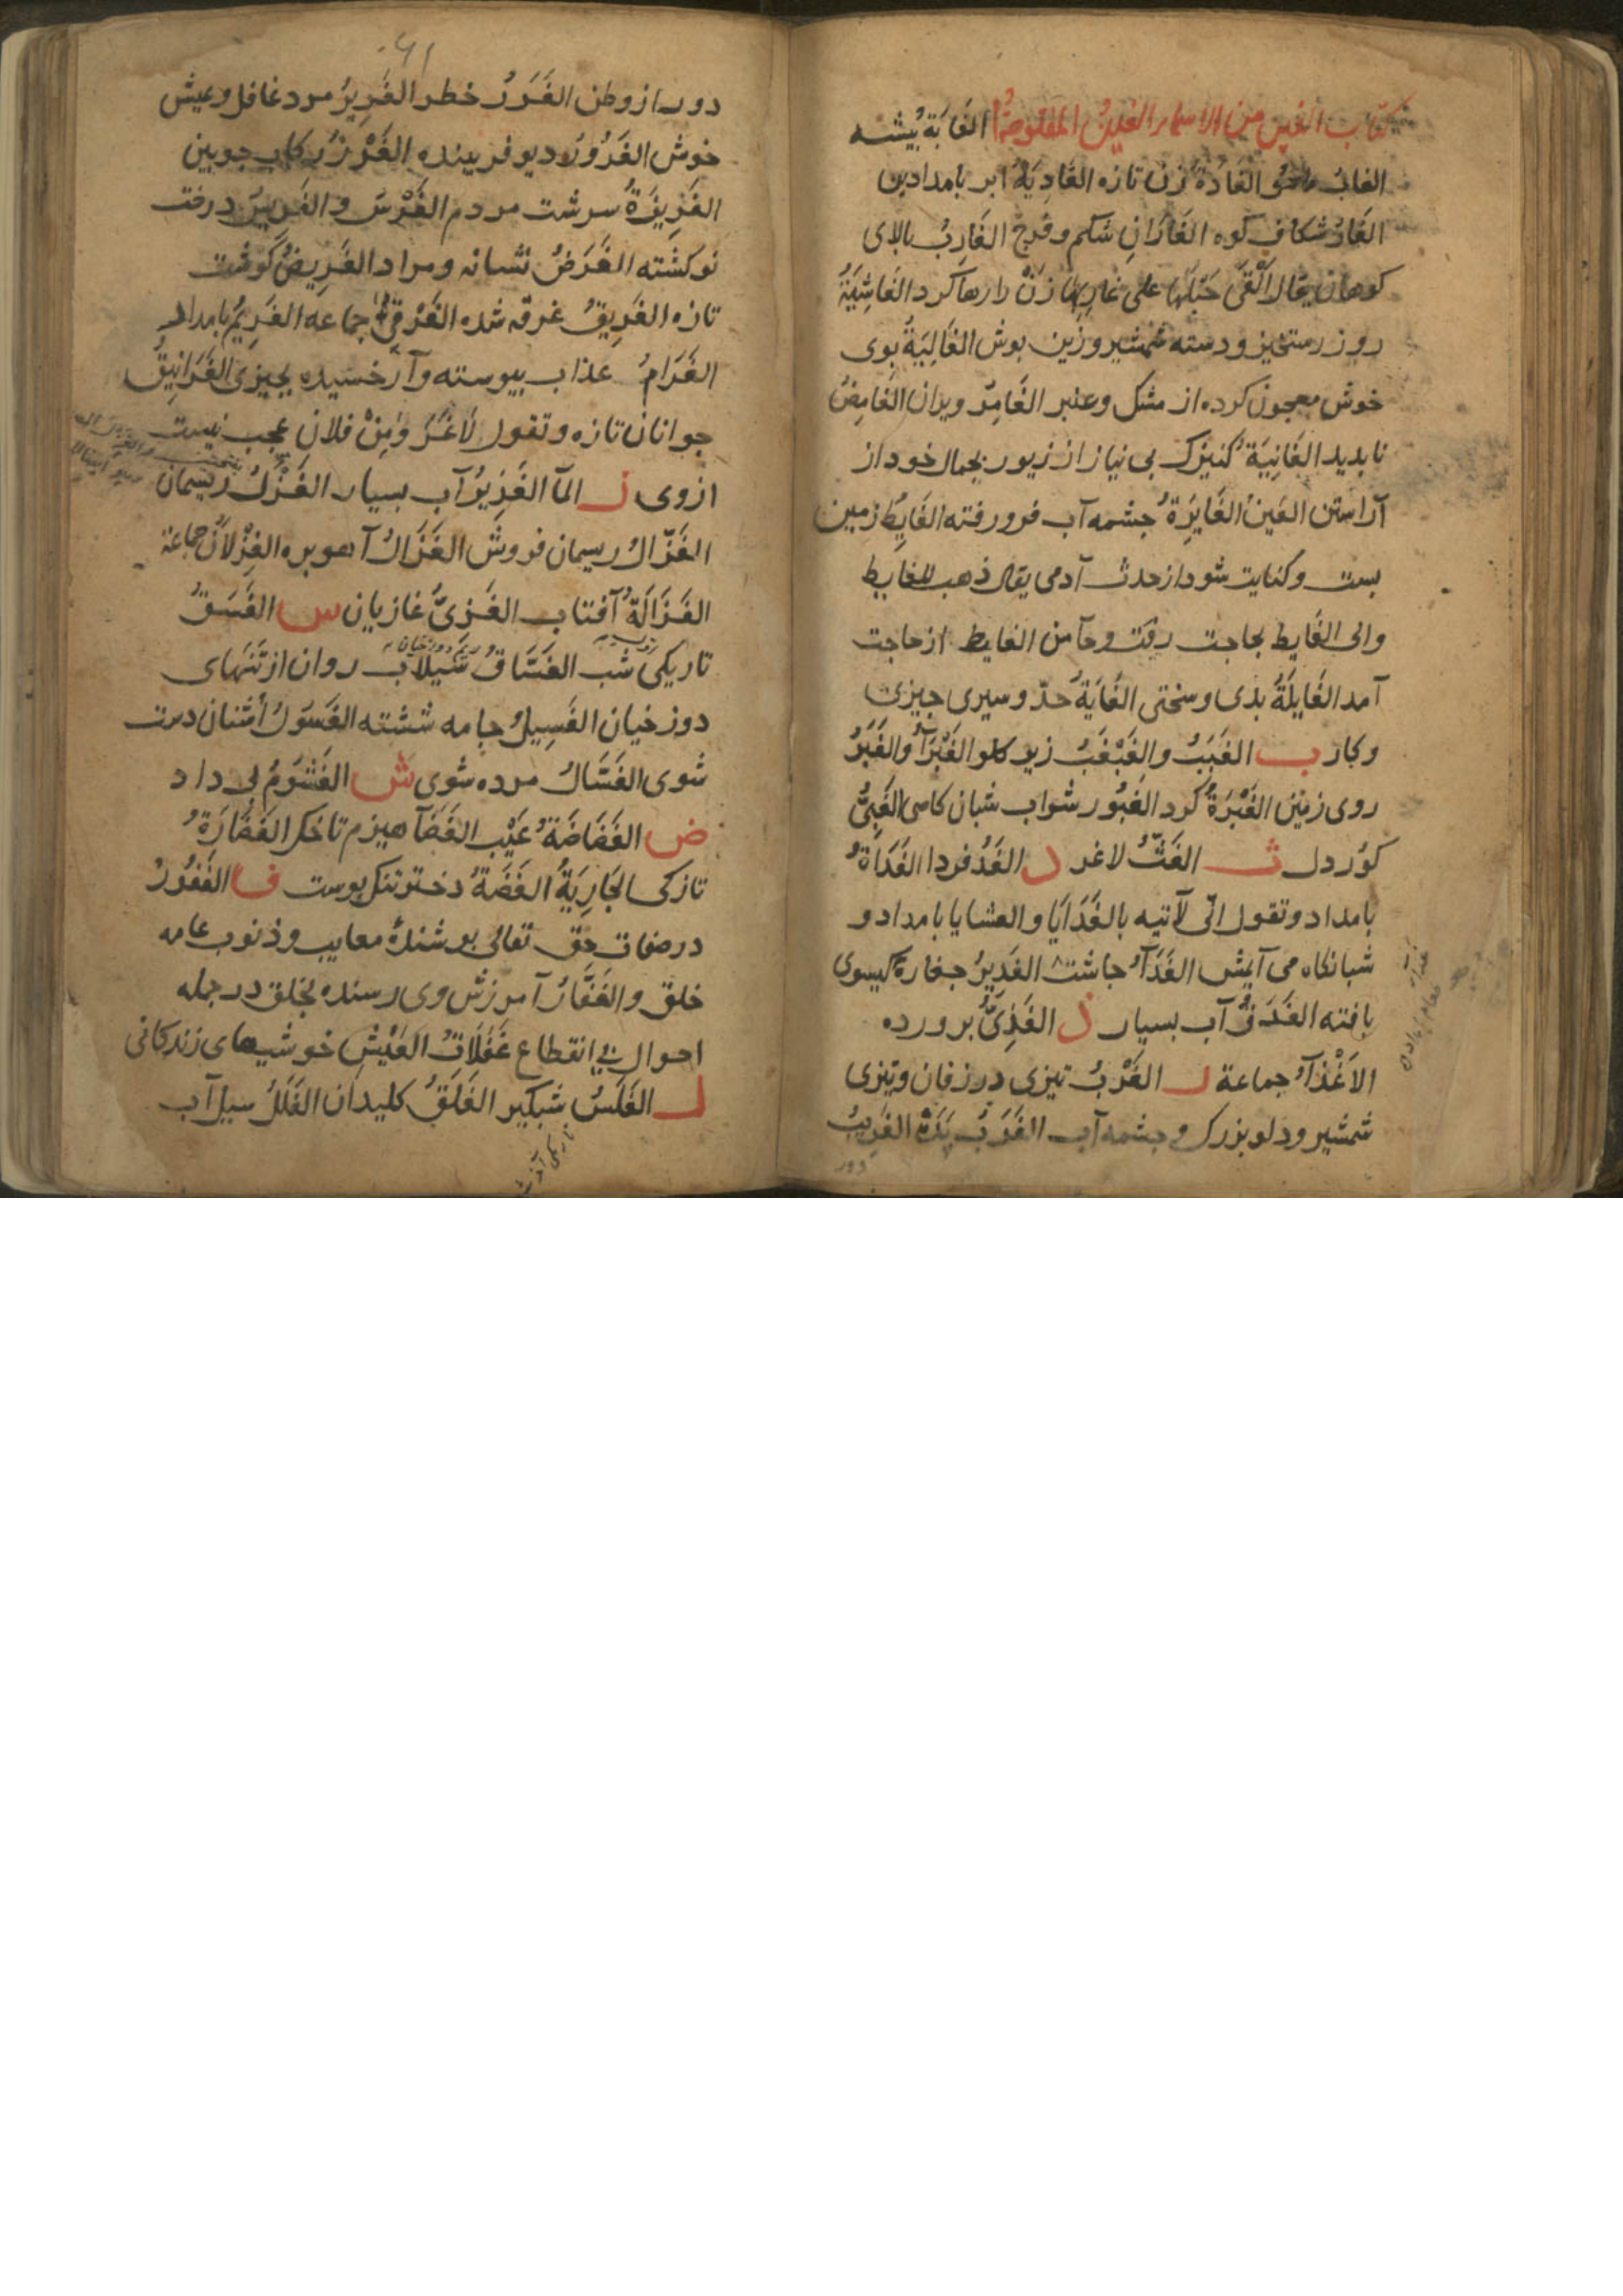 كتاب الغين من الاسماء الغين المفتوحة الغَابَةُ بيشه
الغابُ الغَادَةُ زن تازه الغَادِيَةُ ابر بامدادين
الغَارُ شكاف كوه الغَارَانِ شكم و فرج الغَارِبُ بالاى
كوهان يقال اَلْقَى حَبْلَهَا على غارِبِها زن را رها كرد الغَاشِيَةُ
روز رستخيز و دسته شمشير و زين بوش الغَالِيَةُ بوى
خوش معجون كرده از مشك و عنبر الغَامِرُ ويران الغَامِضُ
نابديد الغَانِيَةُ كنيزك بى نياز از زيور بجمال خود از
آراستن العَينُ الغَايِرَةُ جشمه آب فرو رفته الغَايِطُ زمين
بست و كنايت شود از حدث آدمى يقال ذهب للغايط
والى الغَايط بحاجت رفت و جآ من الغايط از حاجت
آمد الغَايِلَةُ بدى و سختى الغَايَةُ حدّ و سبرى جيزى
و كار ب الغَبَبُ والغَبْغَبُ زير كلو الغَبْرَآءُ والغَبَرُ
روى زمين الغَبْرَةُ كرد الغَبُور شراب شبان كاهى الغَبِىُّ
كور دل ث الغَثُّ لاغر د الغَدُ فردا الغَدَاةُ
بامداد و تقول انّى لآتيه بالغَدَايَا والعشايا بامداد و
شبانكاه مى آيمش الغَدَآءُ جاشت الغَدِيرُ كيسوى
بافته الغَدَقُ آب بسيار ذ الغَذِىُّ برورده
الاَغْذِآءُ جماعة ر الغَرْبُ تيزى در زفان و تيزى
شمشير و دلو بزرك و جشمه آب الغَرَبُ الغَرِيبُ
دور
٦١
دور از وطن الغَرَرُ خطر الغَرِيرُ مرد غافل و عيش
خوش الغَرُورُ ديو فريبنده الغَرْزُ ركاب جوبين
الغَرِيزَةُ سرشت مردم الغَرْسُ و الغَرِيسُ درخت
نو كشته الغَرَضُ نشانه و مراد الغَرِيضُ كوشت
تازه الغَرِيقُ غرقه شده الغَرْقَى جماعه الغَرِيمُ بامدار
الغَرَامُ عذاب بيوسته و آز بجيزى الغَرَانِيقُ
جوانان تازه و تقول لَاغَرْوَ مِنْ فلانٍ عجب نيست
از وى ز المآ الغَزِيرُ آب بسيار الغَزْلُ ريسمان
الغَزّالُ ريسمان فروش الغَزَالُ آهو بره الغِزْلَانُ جماعة
الغَزَالَةُ آفتاب الغَزِىُّ غازيان س الغَسَقُ
تاريكى شب الغَسَّاقُ روان از تنهاى
دوزخيان الغَسِيلُ جامه شسته الغَسُولُ أشنان دست
شوى الغَسَّالُ مرده شوى ش الغَشُومُ بى داد
ض الغَضَاضَةُ عَيْب الغَضَآ هيزم تاخ الغَضَارَةُ
تازكى الجَارِيَةُ الغَضَّةُ دختر تنك بوست ف الغَفُورُ
در صفات حق تعالى بوشندهٔ معايب و ذنوب عامه
خلق و الغَفَّارُ آمرزش وى رسنده بخلق در جمله
احوال بى انقطاع غَفَلَاتُ العَيْشِ خوشيهاى زندكانى
ل الغَلَسُ شبكير الغَلَقُ كليدان الغَلَلُ سيل آب